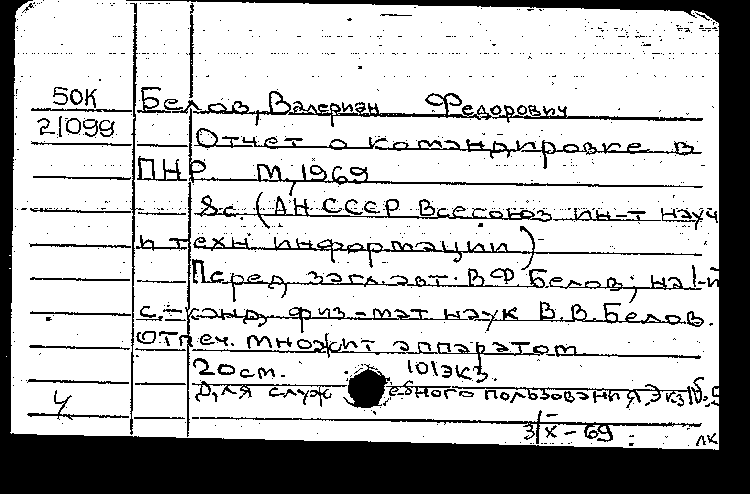 50К Белов, Валериан Федорович
21099 Отчет о командировке в
ПНР. М, 1969
8с. (АН СССР Всесоюз ин-т науч
и техн. информации)
Перед загл авт. В.Ф. Белов; на 1-й
с. - канд. физ-мат наук В.В. Белов.
Отпеч. множит аппаратом
20см. 101экз.
Для служебного пользования, Экз
3/IX - 69
лк